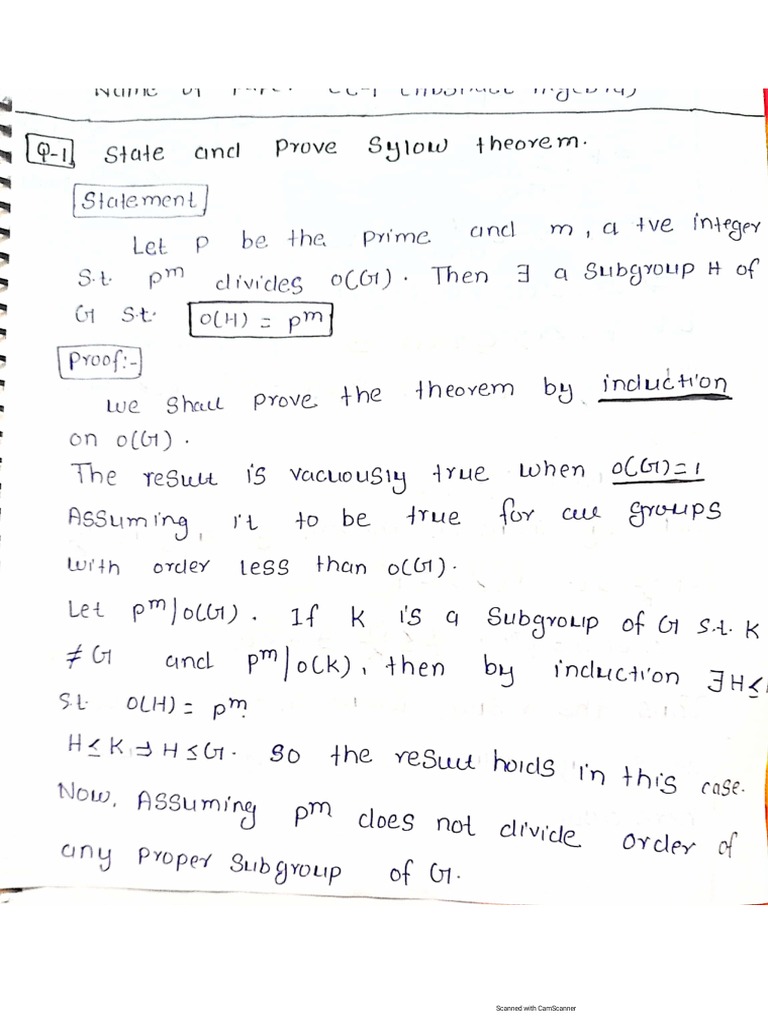 Q-1 State and Prove Sylow theorem.
Statement
Let P be the prime and m, a +ve integer
s.t. p^m divides O(G). Then ∃ a subgroup H of
G s.t. O(H) = p^m
Proof:-
We shall prove the theorem by induction
on O(G).
The result is vacuously true when O(G)=1
Assuming, it to be true for all groups
with order less than O(G).
Let p^m/O(G). If K is a subgroup of G s.t. K
≠ G and p^m/O(K), then by induction ∃ H ≤
s.t. O(H) = p^m.
H ≤ K ⇒ H ≤ G. So the result holds in this case.
Now, Assuming p^m does not divide order of
any proper subgroup of G.
Scanned with CamScanner